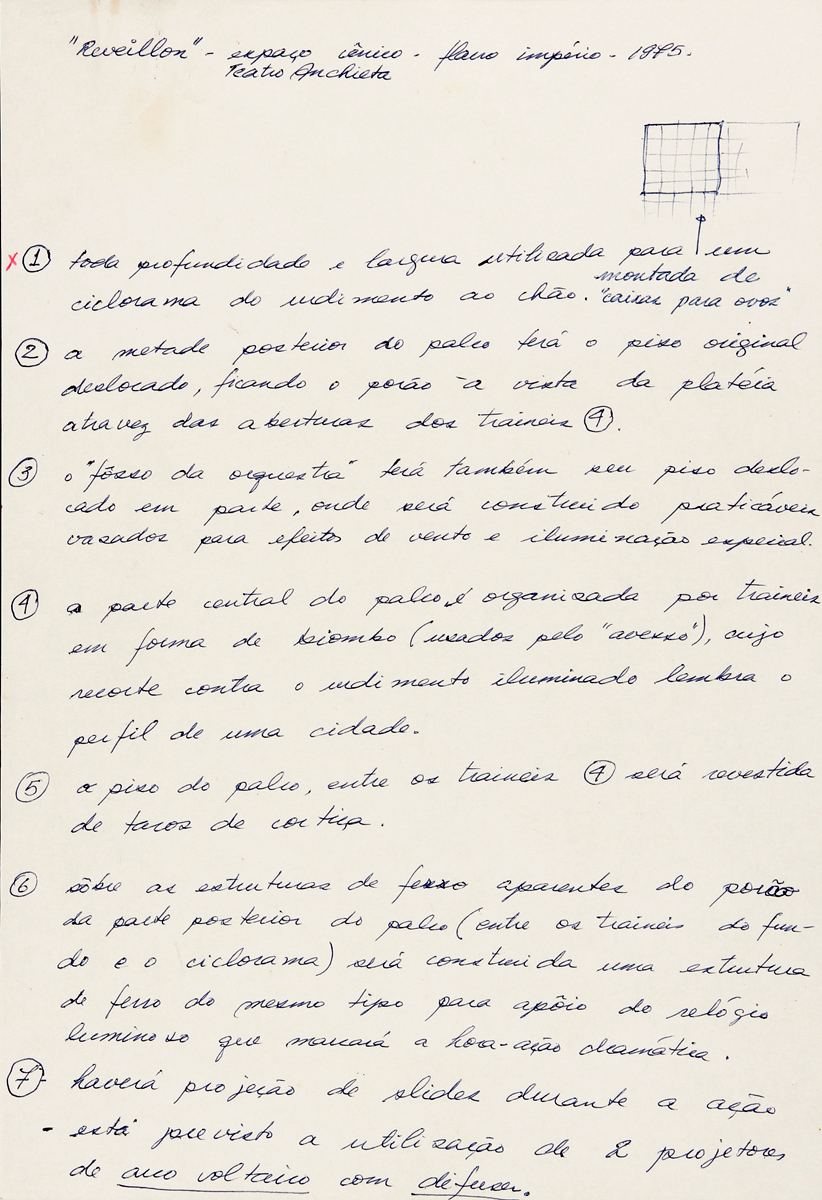 "Reveillon" - espaço cênico - flavio império - 1975.
Teatro Anchieta
① toda profundidade e largura utilizada para um
montada de
ciclorama do urdimento ao chão. "caixas para ovos"
② a metade posterior do palco terá o piso original
deslocado, ficando o porão à vista da platéia
atravez das aberturas dos traineis ④.
③ o "fôsso da orquestra" terá também seu piso deslo-
cado em parte, onde será construido praticáveis
vasados para efeitos de vento e iluminação especial.
④ a parte central do palco, é organizada por traineis
em forma de biombo (usados pelo "avesso"), cujo
recorte contra o urdimento iluminado lembra o
perfil de uma cidade.
⑤ o piso do palco, entre os traineis ④ será revestida
de tacos de cortiça.
⑥ sôbre as estruturas de ferro aparentes do porão
da parte posterior do palco (entre os traineis do fun-
do e o ciclorama) será construida uma estrutura
de ferro do mesmo tipo para apôio do relógio
luminoso que marcará a hora-ação dramática.
⑦- haverá projeção de slides durante a ação
- está previsto a utilização de 2 projetores
de arco voltaico com difusor.